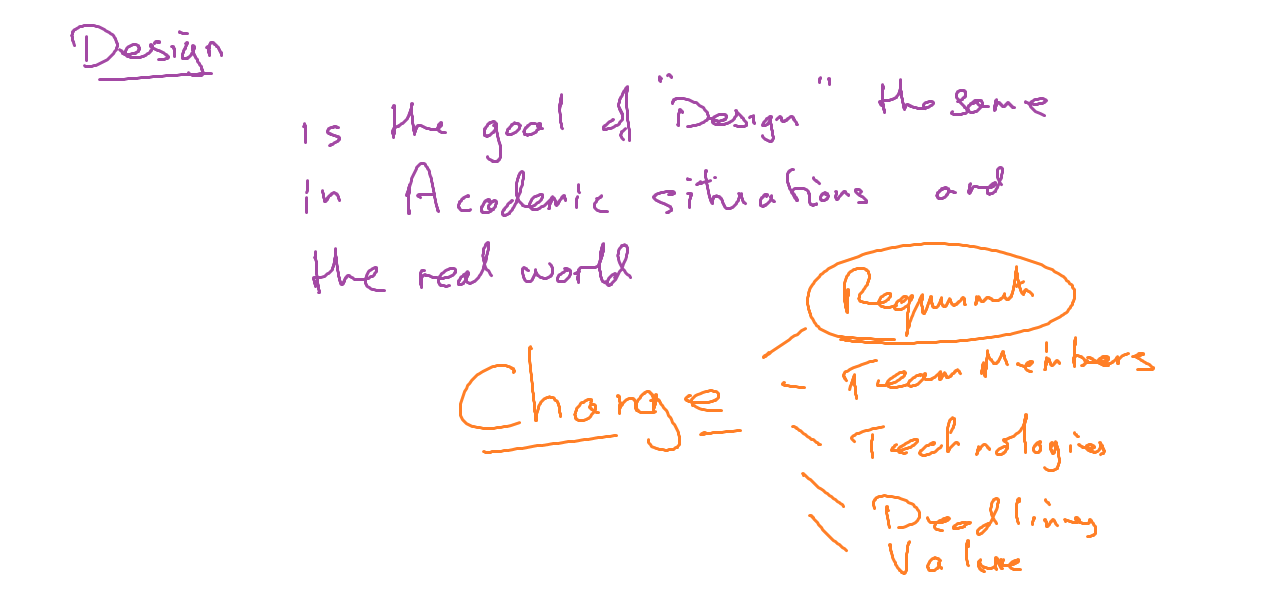 Design
is the goal of "Design" the same
in Academic situations and
the real world
Requirements
Change
Team Members
Technologies
Deadlines
Value